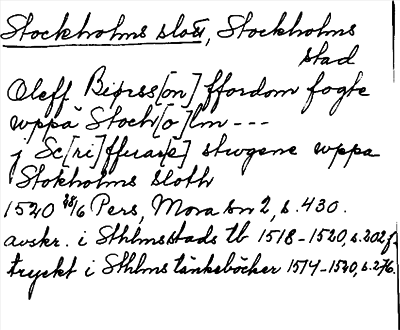 Stockholms slott, Stockholms
stad
Oleff Biørss[on] ffordom fogte
vppå Stoch[o]lm ---
j Sc[ri]ffuar[e] stwgene vppa
Stokholms sloth
1520 28/6 Pers, Mora sn 2, s. 430.
avskr. i Sthlms stads tb 1518-1520, s. 202 f.
tryckt i Sthlms tänkeböcker 1514-1520, s. 276.